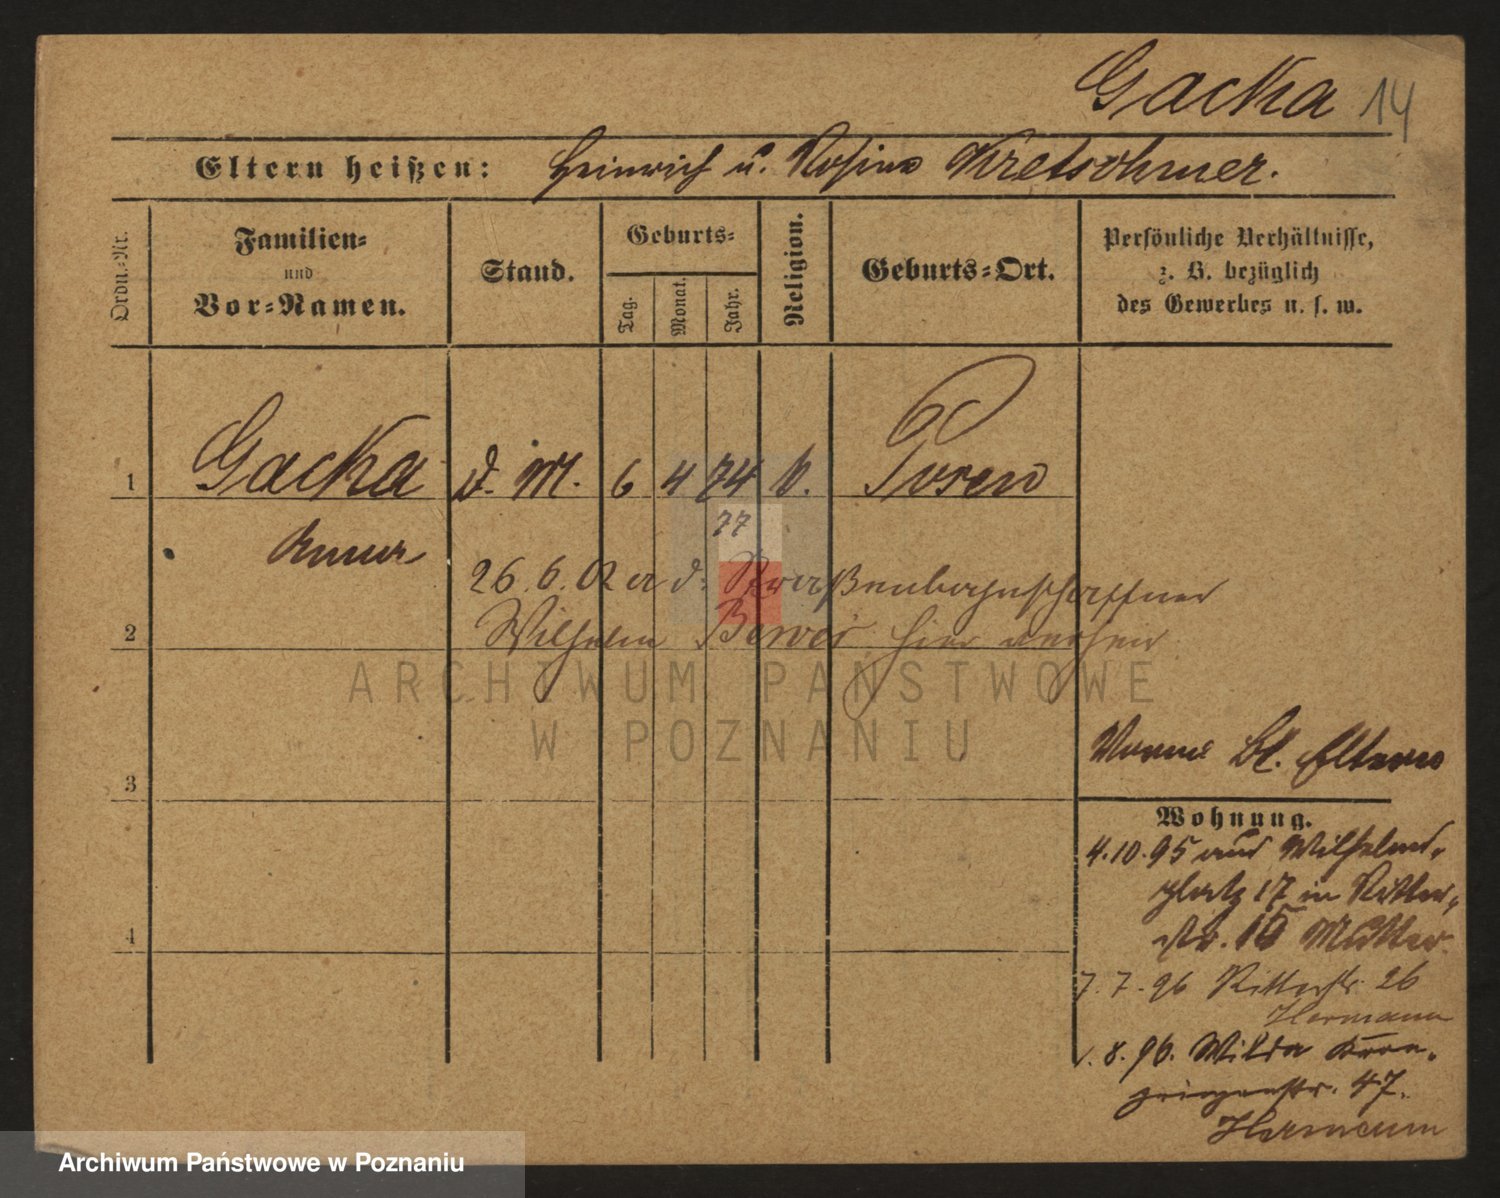 Gacka 14
Eltern heißen: Heinrich u. Rosina Kretschmer.
Ordn.-Nr.
Familien-
und
Vor-Namen.
Stand.
Geburts-
Tag.
Monat.
Jahr.
Religion.
Geburts-Ort.
Persönliche Verhältnisse,
z. B. bezüglich
des Gewerbes u. s. w.
1 Gacka d. M. 6 4 74 Posen
77
Anna
26. 6. 02 a. d. Straßenbahnschaffner
2 Wilhelm hier verheir
ARCHIWUM PAŃSTWOWE
W POZNANIU
3
Bl. Eltern
Wohnung.
4. 10. 95 aus Wilhelms-
platz 17 in Ritter-
4 str. 15 Mutter.
7. 7. 96 Ritterstr. 26
Hermann
8. 96. Wilda Kron-
prinzenstr. 47.
Hermann
Archiwum Państwowe w Poznaniu